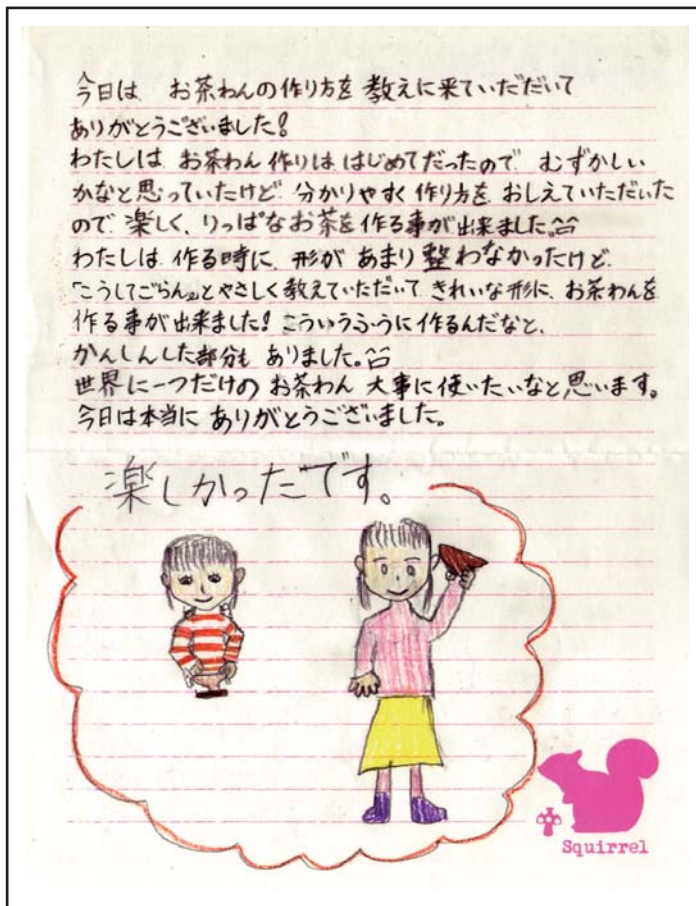 今日は お茶わんの作り方を 教えに来ていただいて
ありがとうございました!
わたしは お茶わん作りは はじめてだったので むずかしい
かなと思っていたけど 分かりやすく作り方を おしえていただいた
ので 楽しく、りっぱなお茶を作る事が出来ました。^^
わたしは 作る時に 形が あまり 整わなかったけど
「こうしてごらん。」とやさしく教えていただいて きれいな形に お茶わんを
作る事が出来ました! こういうふうに作るんだなと、
かんしんした部分も ありました。^^
世界に一つだけの お茶わん 大事に使いたいなと思います。
今日は本当に ありがとうございました。
楽しかったです。
Squirrel